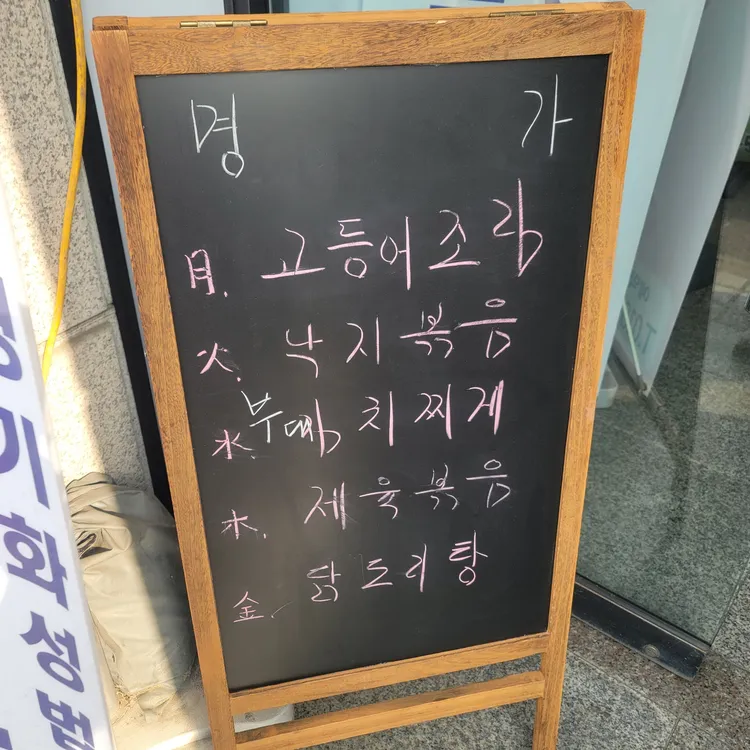 명 가
月. 고등어조림
火. 낙지복음
水. 부대치찌게
木. 제육복음
金. 닭도리탕
기화성